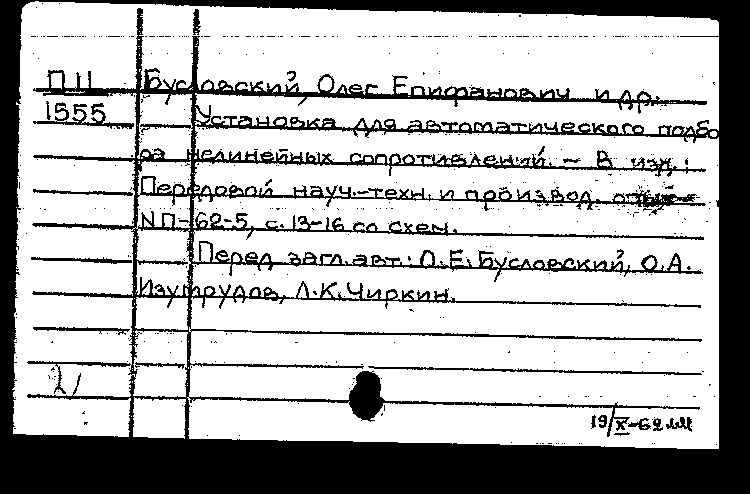 П11 Бусловский, Олег Епифанович и др.
1555 Установка для автоматического подбо
ра нелинейных сопротивлений. – В изд.:
Передовой науч.-техн. и производ. опыт
N П-62-5, с. 13-16 со схем.
Перед загл. авт.: О.Е. Бусловский, О.А.
Изумрудов, Л.К. Чиркин.
2/
19/X-62